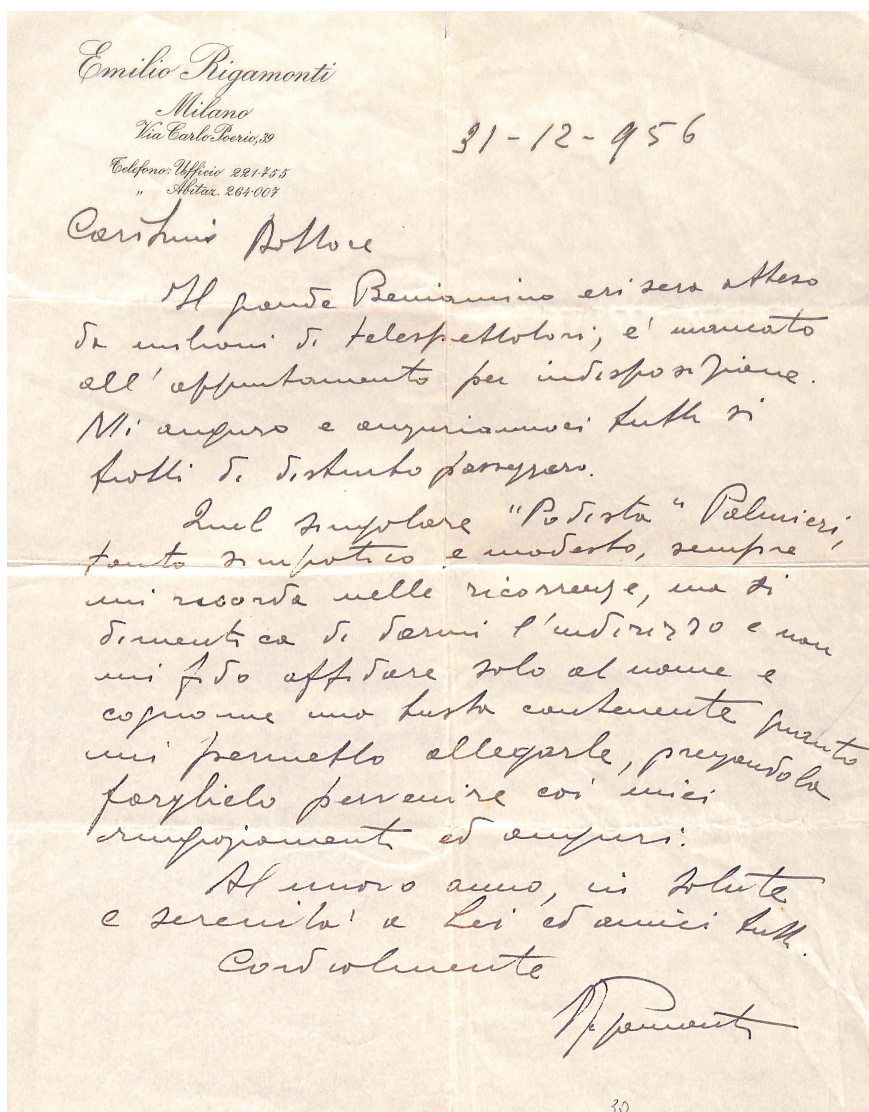 Emilio Rigamonti
Milano
Via Carlo Poerio, 39
Telefono: Ufficio 221-755
„ Abitaz. 264-007
31-12-956
Carissimo Dottore
Il grande Beniamino eri sera atteso
da milioni di telespettatori, e' mancato
all'appuntamento per indisposizione.
Mi auguro e auguriamoci tutti si
tratti di disturbo passeggero.
Quel singolare "Podista" Palmieri,
tanto simpatico e modesto, sempre
mi ricorda nelle ricorrenze, ma si
dimentica di darmi l'indirizzo e non
mi fido affidare solo al nome e
cognome una busta contenente quanto
mi permetto allegarle, pregandola
farglielo pervenire coi miei
ringraziamenti ed auguri.
Al nuovo anno, in salute
e serenita' a Lei ed amici tutti.
Cordialmente
Rigamonti
30